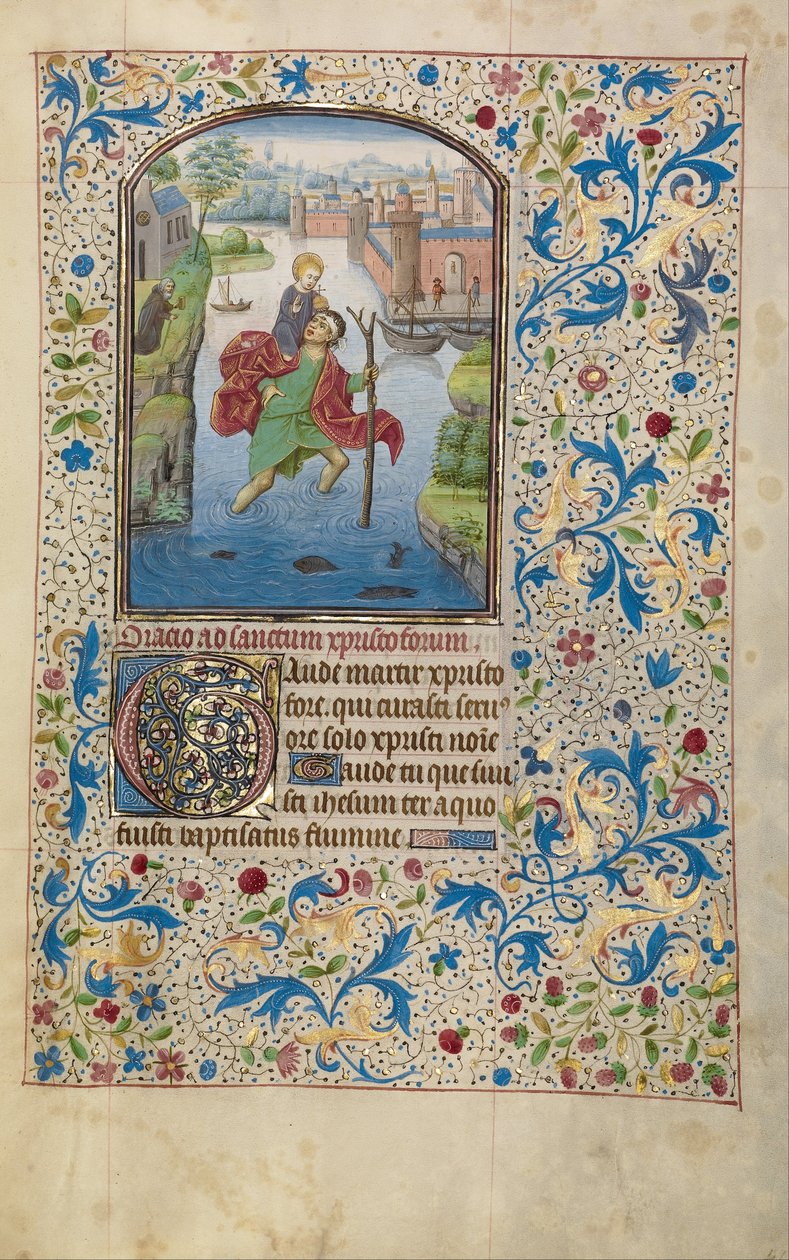 Oracio ad sanctum xpristoforum.
Gaude martir xpristo
fore. qui curasti seruꝰ
ore solo xpristi noīe
Gaude tu quesiui
sti ihesum ter a quo
fuisti baptisatus flumine